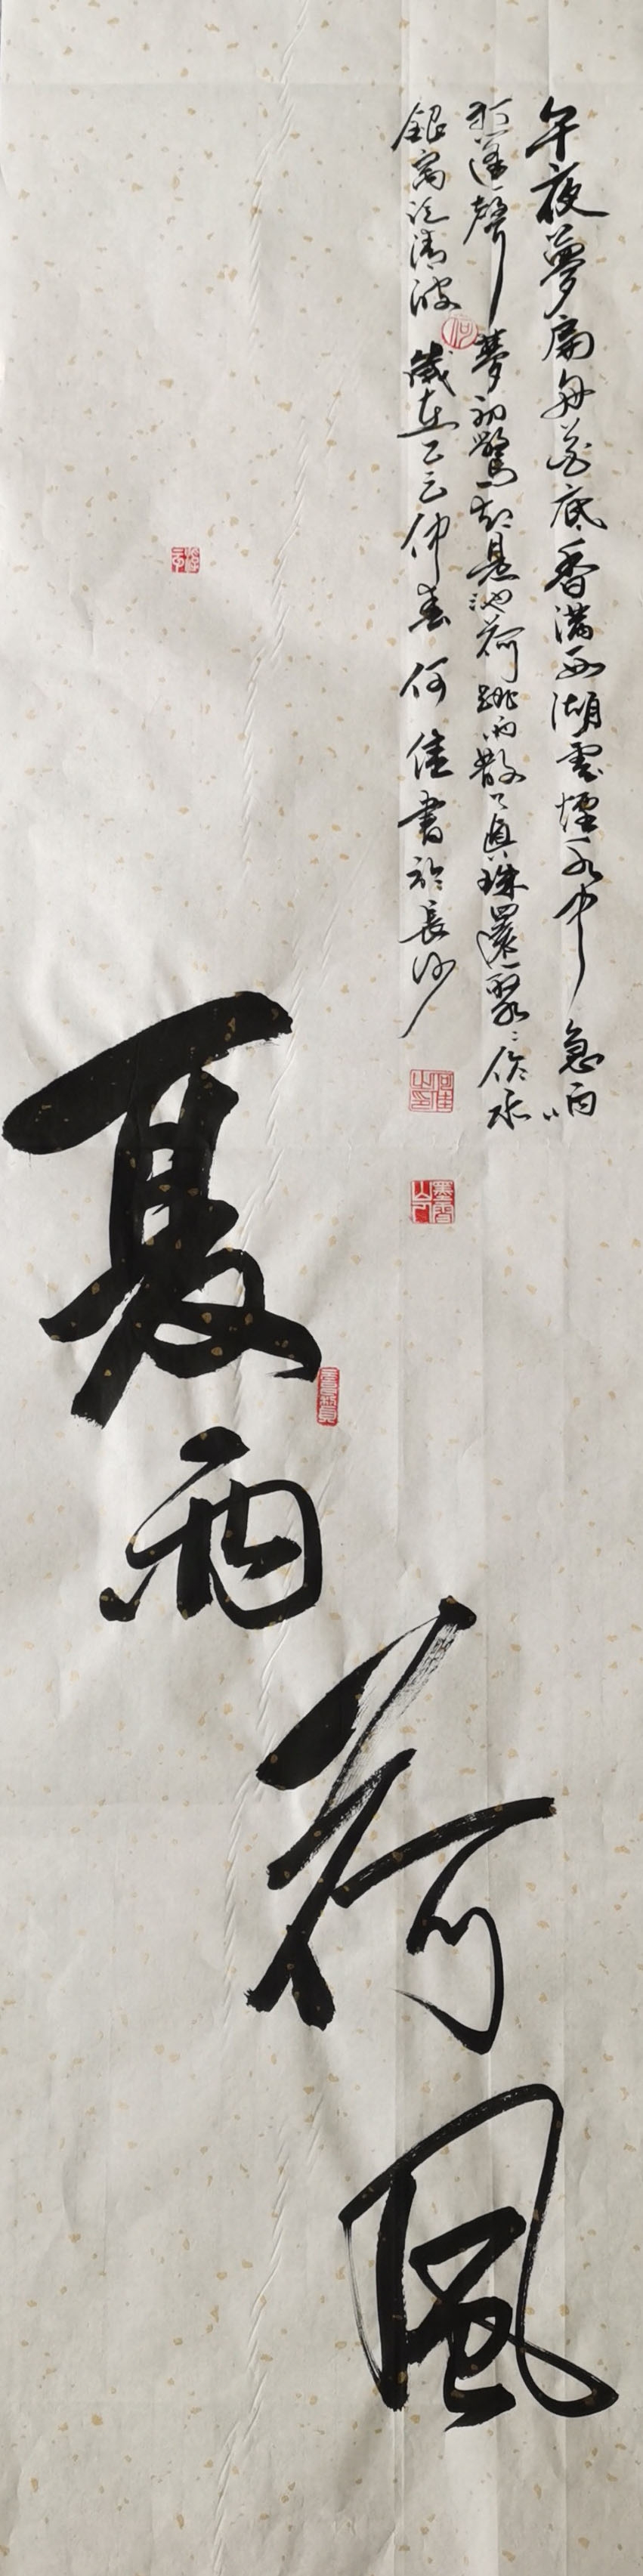 午夜夢扁舟花底香滿西湖雲煙水中 急雨
打篷聲 夢初驚却是池荷跳雨散了真珠還聚〻作水
銀窩泛清波 歲在乙巳仲春 何佳書於長沙
何
何佳之印
夏雨荷風